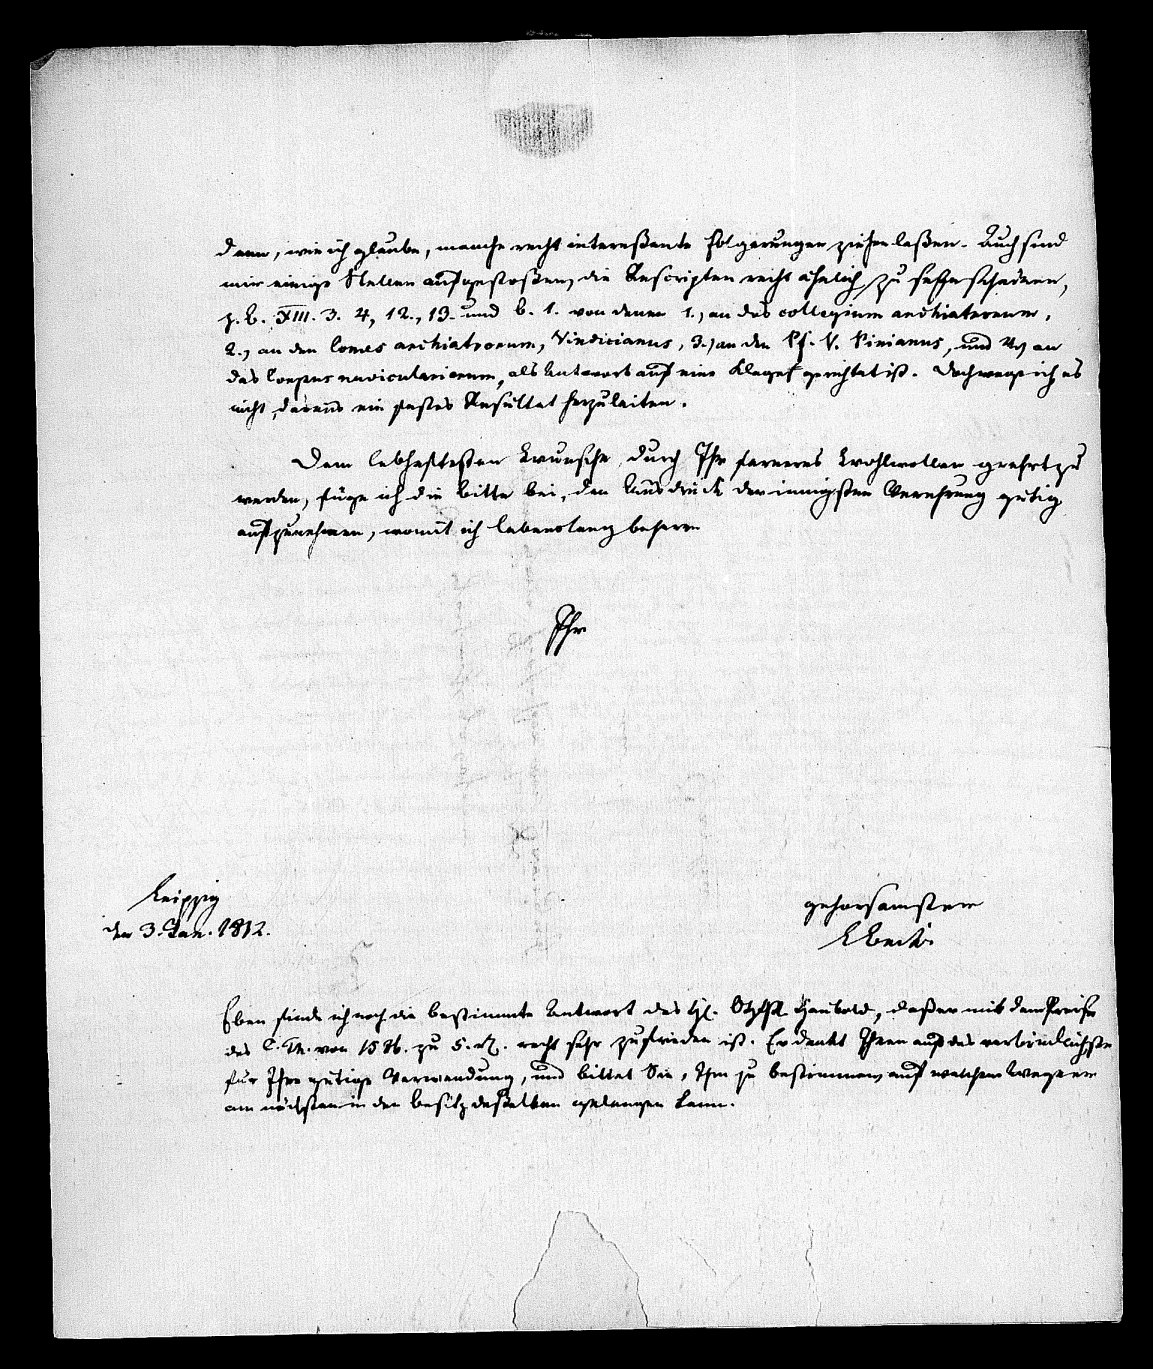 denn, wie ich glaube, manche recht intereßante Folgerungen ziehen laßen. Auch sind
mir einige Stellen aufgestoßen, die Rescripten recht ähnlich zu sehen scheinen,
z. B. XIII. 3. 4, 12., 13. und 6. 1. von denen 1.) an das collegium archiatrorum,
2.) an den Comes archiatrorum, Vindicianus, 3.) an den Pf. V. Pinianus, und 4.) an
das Corpus naviculariorum, als Antwort auf eine Klage gerichtet ist. Doch wage ich es
nicht, daraus ein festes Resultat herzuleiten.
Dem lebhaftesten Wunsche, durch Ihr ferneres Wohlwollen geehrt zu
werden, füge ich die Bitte bei, den Ausdruck der innigsten Verehrung gütig
aufzunehmen, womit ich lebenslang beharre
Ihr
Leipzig
den 3. Jan. 1812.
gehorsamster
Eben finde ich noch die bestimmte Antwort des Haubold, daß er mit dem Preise
des C. Th. von zu 5. recht sehr zufrieden ist. Er dankt Ihnen auf das verbindlichste
für Ihre gütige Verwendung, und bittet Sie, Ihm zu bestimmen, auf welchem Wege er
am nächsten in den Besitz deßelben gelangen kann.